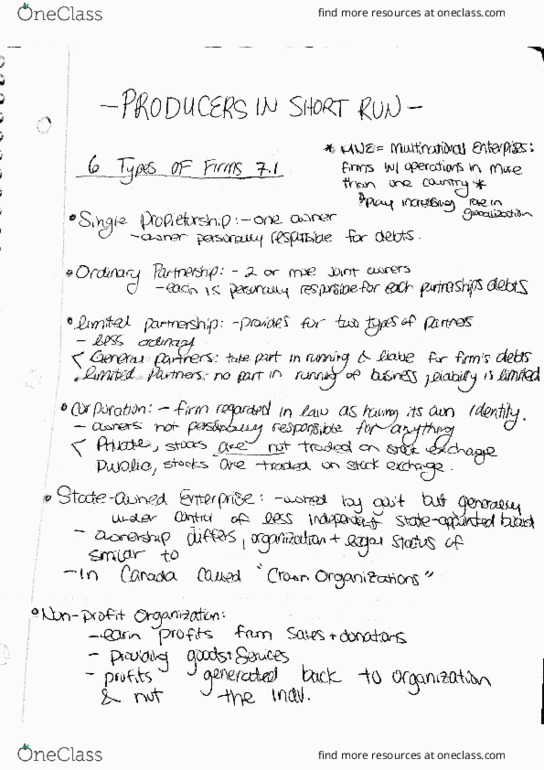 OneClass
find more resources at oneclass.com
- PRODUCERS IN SHORT RUN -
6 Types of Firms 7.1
* MNE = Multinational Enterprises:
firms w/ operations in more
than one country *
play increasing role in
globalization
• Single Proprietorship: - one owner
- owner personally responsible for debts.
• Ordinary Partnership: - 2 or more joint owners
- each is personally responsible for each partnerships debts
• limited partnership: - provides for two types of partners
- less ordinary
< General partners: take part in running & liable for firm's debts
• limited Partners: no part in running of business, liability is limited
• Corporation: - firm regarded in law as having its own identity.
- owners not personally responsible for anything
< Private, stocks are not traded on stock exchange
Public, stocks are traded on stock exchange.
• State-owned Enterprise: - owned by gov't but generally
under control of less independent state-appointed board
- ownership differs, organization + legal status of
similar to
- In Canada called "Crown Organizations"
• Non-Profit Organization:
- earn profits from sales + donations
- providing goods + Services
- profits generated back to organization
& not the indv.
OneClass
find more resources at oneclass.com